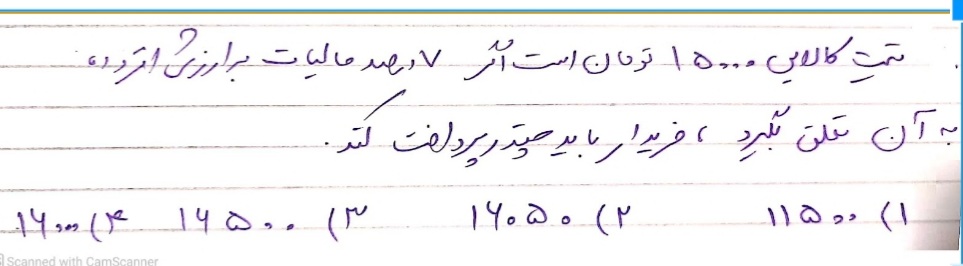 قیمت کالایی ۱۵۰۰۰ تومان است اگر ۷ درصد مالیات بر ارزش افزوده
به آن تعلق بگیرد ، خریدار باید چقدر پرداخت کند.
۱) ۱۱۵۰۰ ۲) ۱۶۰۵۰ ۳) ۱۶۵۰۰ ۴) ۱۶۰۰۰
Scanned with CamScanner